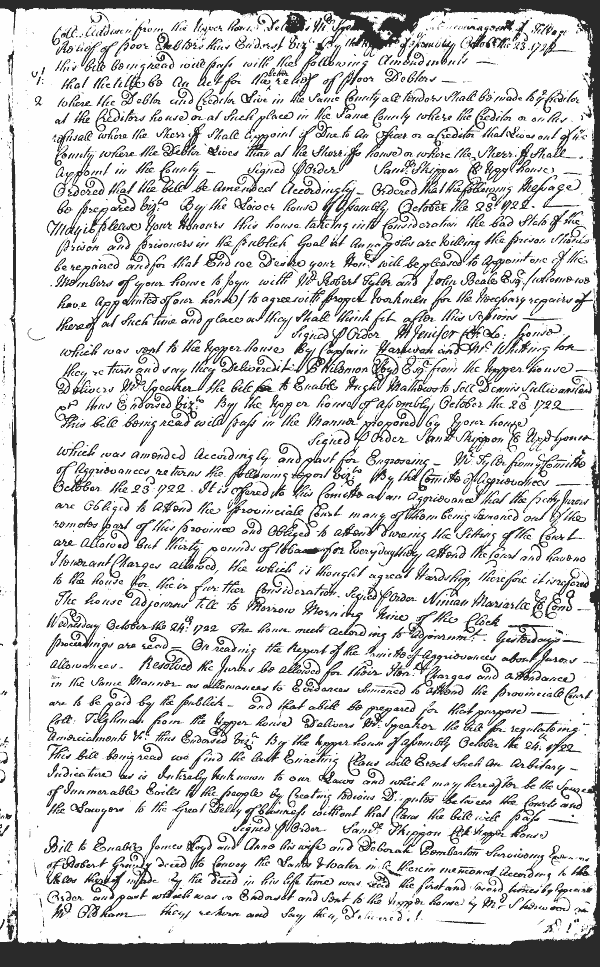 Coll. Addison from the Upper house Delivers Mr Encouragement of Tillage
Relief of poor Debtors thus Endorst Vizt By the of Assembly October the 23 1722
this bill being read will pass with the following Amendments
1. that the title be An Act for the better relief of poor Debtors
2 where the Debtor and Creditor Live in the Same County all tenders Shall be made to ye Creditor
at the Creditors house or at Such place in the Same County where the Creditor or on his
refusall where the Sherrif Shall appoint if Due to An Officer or a Creditor that Lives out of the
County where the Debtor Lives than at the Sherriffs house or where the Sherrif Shall
Appoint in the County Signed Order Saml Skippon Cl Upp house
Ordered that the bill be Amended Accordingly Ordered that the following Message
be prepared Vizt By the Lower house of Assembly October the 23d 1722
May it please your Honours this house taking into Consideration the bad State of the
Prison and prisoners in the publick Goal at Annapolis are willing the prison Should
be repaired and for that End we Desire your Honrs will be pleased to Appoint one of the
Members of your house to Joyn with Mr Robert Tyler and John Beale Esqr (whome we
have Appointed of our house) to agree with proper workmen for the Necessary repaires of
thereof at Such time and place as they Shall think fit after this Sessions
Signed Order M Jenifer Cl Lo. house
which was sent to the Upper house By Captain and Mr Whittington
they return and say they Delivered it Philemon Lloyd Esqr from the Upper house
Delivers Mr Speaker the bill to Enable Hugh Mathews to Sell Dennis Sullivans Land
thus Endorsed Vizt By the Upper house of Assembly October the 23 1722
This bill being read will pass in the Manner proposed by your house
Signed Order Saml Skippon Cl Upp house
which was amended Accordingly and past for Engrossing Mr Tyler from ye Comittee
of Aggrievances returns the following report Vizt By the Comitte of Aggrievances
October the 23d 1722. It is offered to this Comitte as an Aggrievance that the petty Jurors
are Obliged to Attend the Provinciale Court many of them being Sumoned out of the
remotes part of this province and Obliged to Attend during the Sitting of the Court
are Allowed but thirty pounds of tobacco for Every day they Attend the Court and have no
Itinerant Charges allowed, the which is thought a great Hardship, therefore it is refered
to the house for their further Consideration. Signed Order Ninian Mariartee Cl Comd
The house Adjourns till to Morrow Morning Nine of the Clock
Wednesday October the 24th 1722 The house meets According to Adjournmt. Yesterdays
proceedings are read On reading the Report of the Comitte of Aggrievances about Jurors
allowances. Resolved the Jurors be allowed for their Itenr Charges and attendance
in the Same Manner as allowances to Evidences Sumoned to attend the provinciale Court
are to be paid by the publick and that a bill be prepared for that purpose
Coll. Tilghman from the Upper house Delivers Mr Speaker the bill for regulating
Amerciaments &c thus Endorsed Vizt By the Upper house of Assembly October the 24. 1722
This bill being read we find the last Enacting Claus will Erect Such An Arbitary
Judicature as is Intirely unknown to our Laws and which may hereafter be the Source
of Innumerable Evills to the people by Creating tedious Disputes between the Courts and
the Lawyers to the Great Delay of business without that Claus the bill will pass
Signed Order Saml Skippon Cl Upper house
Bill to Enable James Loyd and Anne his wife and Deborah Pemberton Surviving
of Robert Grundy deced to Convey the Lands & Water mill therein mentioned According to the
thereof made by the Deced in his life time was read the first and second times by Especiall
Order and past which was so Endorst and Sent to the Upper house by Mr Sherwood and
Mr Oldham they return and Say they Delivered it